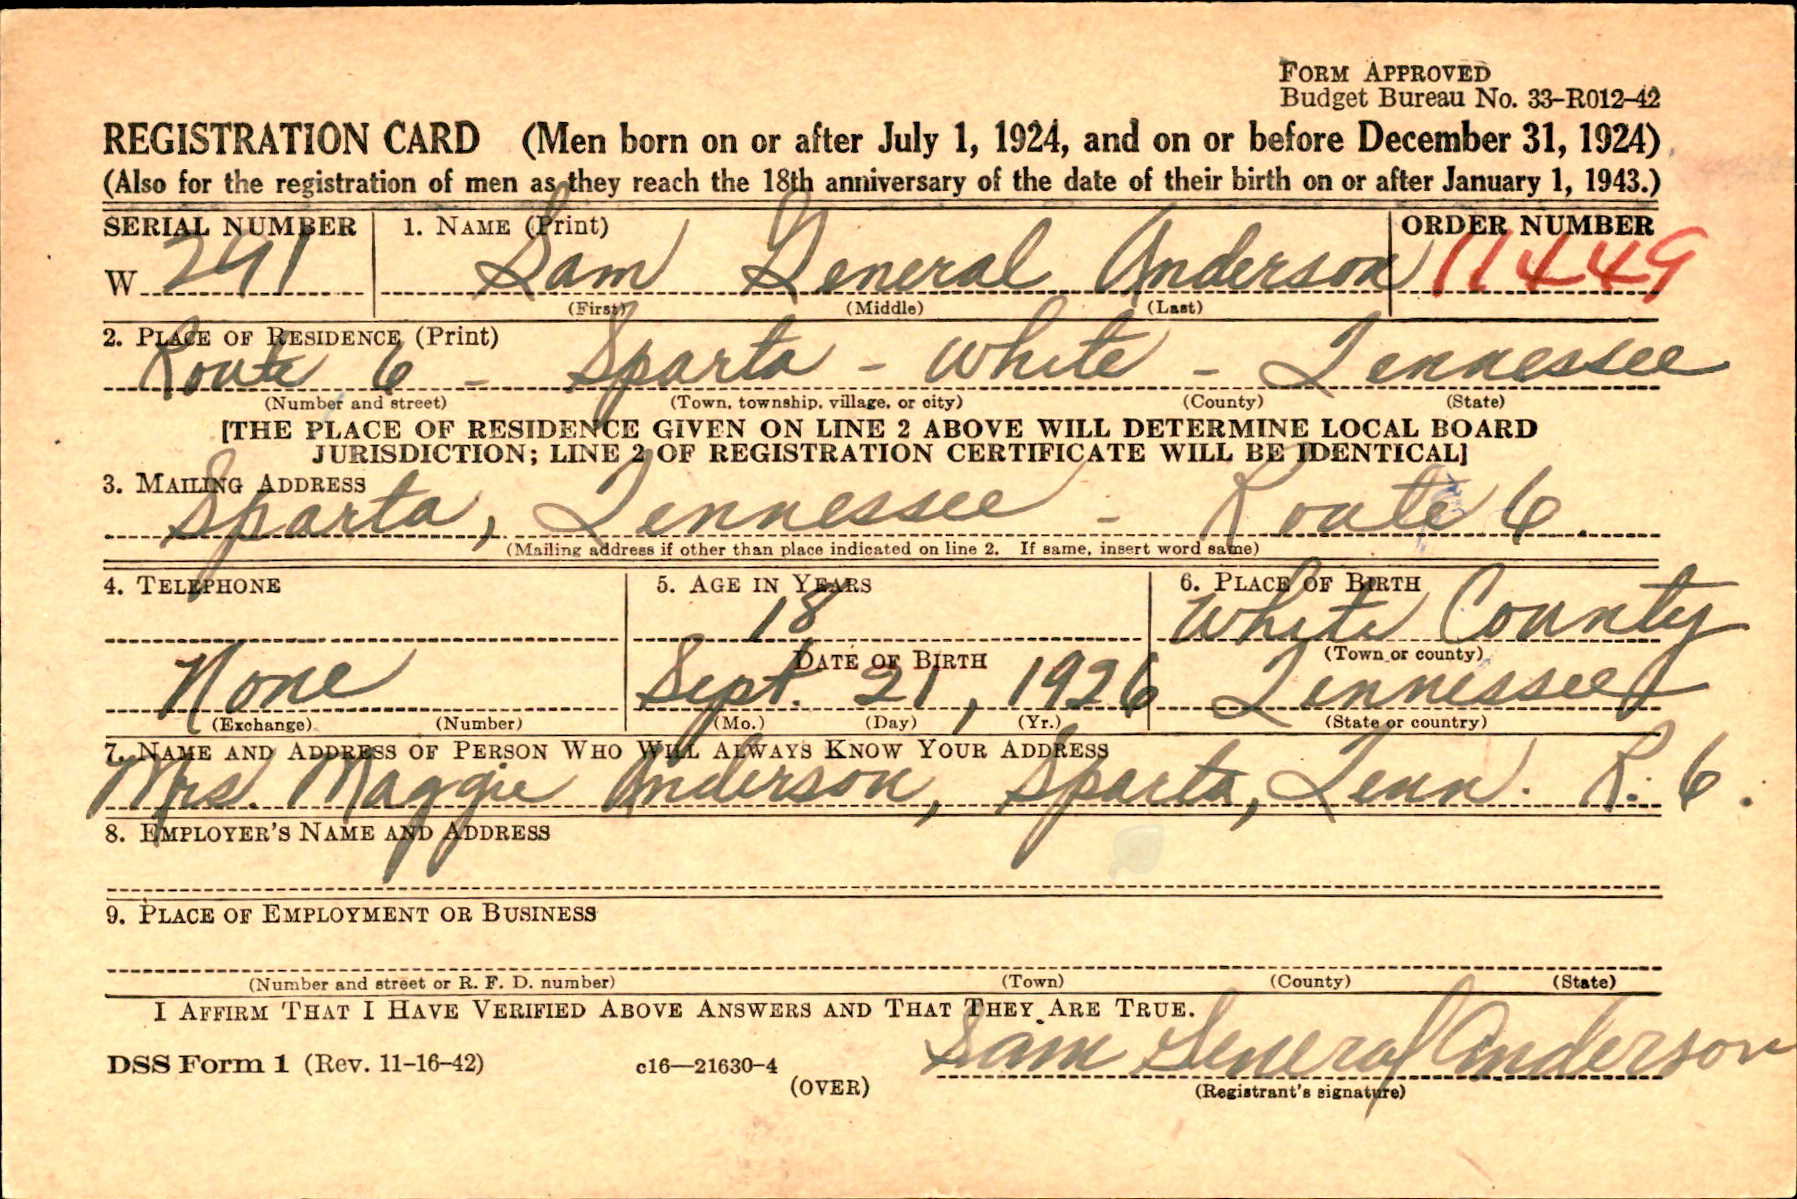 FORM APPROVED
Budget Bureau No. 33-R012-42
REGISTRATION CARD (Men born on or after July 1, 1924, and on or before December 31, 1924)
(Also for the registration of men as they reach the 18th anniversary of the date of their birth on or after January 1, 1943.)
SERIAL NUMBER 1. NAME (Print) ORDER NUMBER
W 291 Sam General Anderson 11449
(First) (Middle) (Last)
2. PLACE OF RESIDENCE (Print)
Route 6 - Sparta - White - Tennessee
(Number and street) (Town, township, village, or city) (County) (State)
[THE PLACE OF RESIDENCE GIVEN ON LINE 2 ABOVE WILL DETERMINE LOCAL BOARD
JURISDICTION; LINE 2 OF REGISTRATION CERTIFICATE WILL BE IDENTICAL]
3. MAILING ADDRESS
Sparta, Tennessee - Route 6.
(Mailing address if other than place indicated on line 2. If same, insert word same)
4. TELEPHONE 5. AGE IN YEARS 6. PLACE OF BIRTH
18 White County
DATE OF BIRTH (Town or county)
None Sept. 21, 1926 Tennessee
(Exchange) (Number) (Mo.) (Day) (Yr.) (State or country)
7. NAME AND ADDRESS OF PERSON WHO WILL ALWAYS KNOW YOUR ADDRESS
Mrs. Maggie Anderson, Sparta, Tenn. R. 6.
8. EMPLOYER'S NAME AND ADDRESS
9. PLACE OF EMPLOYMENT OR BUSINESS
(Number and street or R. F. D. number) (Town) (County) (State)
I AFFIRM THAT I HAVE VERIFIED ABOVE ANSWERS AND THAT THEY ARE TRUE.
DSS Form 1 (Rev. 11-16-42) c16—21630-4 Sam General Anderson
(OVER) (Registrant's signature)